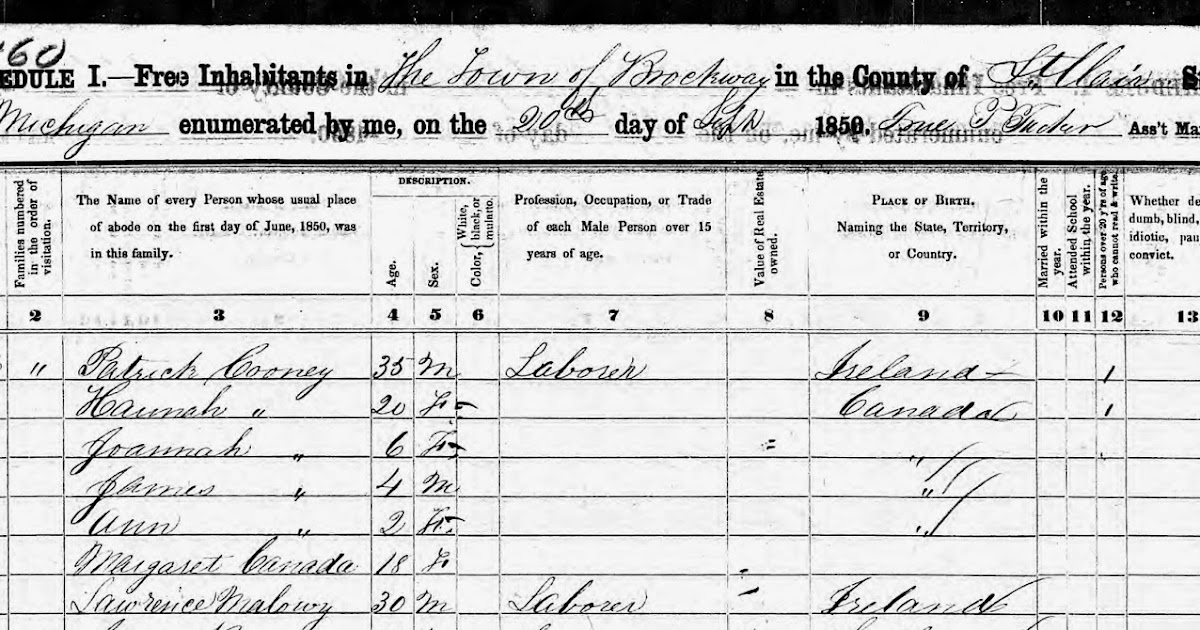 460
EDULE I.—Free Inhabitants in The Town of Brockway in the County of St Clair S
Michigan enumerated by me, on the 20th day of Sept 1850. True P. Tucker Ass't Ma
Families numbered in the order of visitation.
The Name of every Person whose usual place
of abode on the first day of June, 1850, was
in this family.
DESCRIPTION.
Age.
Sex.
Color, { White, black, or mulatto.
Profession, Occupation, or Trade
of each Male Person over 15
years of age.
Value of Real Estate owned.
PLACE OF BIRTH.
Naming the State, Territory,
or Country.
Married within the year.
Attended School within the year.
Persons over 20 y'rs of age who cannot read & write.
Whether de
dumb, blind,
idiotic, pau
convict.
2 3 4 5 6 7 8 9 10 11 12 13
" Patrick Cooney 35 M Laborer Ireland 1
Hannah " 20 F Canada 1
Joannah " 6 F "
James " 4 M "
Ann " 2 F "
Margaret Canada 18 F "
Lawrence Malowy 30 M " Laborer Ireland